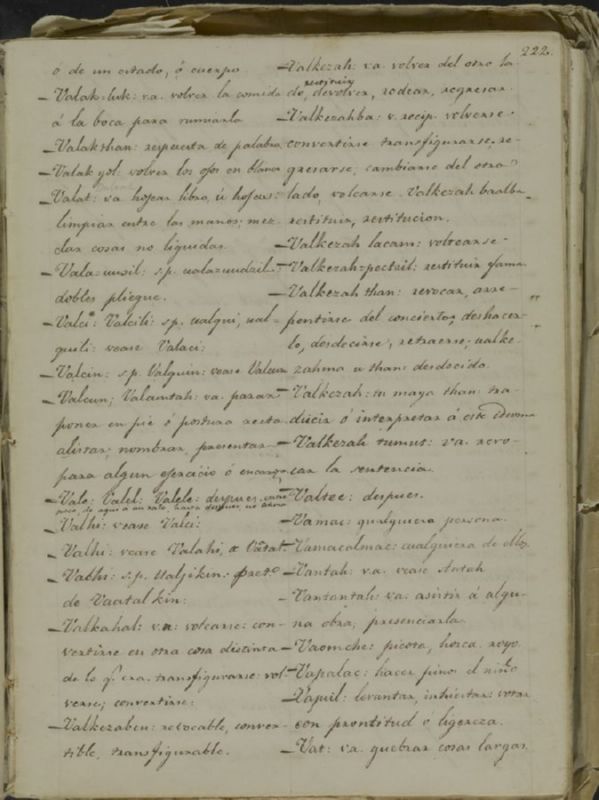 222.
ó de un estado, ó cuerpo
— Valak-luk: va. volver la comida
á la boca para rumiarla
Valakthan: respuesta de palabra
— Valak yol: volver los ojos en blanco
Valat: va hojear libro, ú hojas:
limpiar entre las manos; mez-
clar cosas no liquidas
— Vala-uudzil: s.p. uala-uudzil.
dobles pliegue.
— Valci: Valcili: sp. ualqui, ual-
quili: vease Valaci:
— Valcin: s.p. Valquin: vease Valcun
— Valcun; Valcuntah: va. parar
poner en pie ó postura recta
alistar; nombrar, presentar
para algun ejercicio ó encargo
— Vale: Valel: Valele: despues,
poco, de aqui á un rato, hasta despues,
— Valhi: vease Valci:
— Valhi: vease Valahi, Vatal
— Valhi: s.p. Ualjikin: pret.o
de Vaatal kin:
— Valkahal: v.n: volcarse: con-
vertirse en otra cosa distinta
de lo q.e era. transfigurarse: vol-
verse; convertirse:
— Valkezaben: revocable, conver-
tible, transfigurable.
— Valkezah: va. volver del otro la-
restituir
do, devolver, rodear, regresar.
Valkezahba: v. recip. volverse
convertirse transfigurarse. re-
gresarse, cambiarse del otro
lado, volcarse. Valkezah baalba
restituir, restitucion.
— Valkezah lacam: voltearse-
— Valkezah-pectzil: restituir fama
— Valkezah than: revocar, arre-
pentirse del concierto, deshacer-
lo, desdecirse, retraerse; ualke-
zahma u than: desdecido.
— Valkezah: tu maya than: tra-
ducir ó interpretar á este idioma
— Valkezah tumut: va. revo-
car la sentencia.
— Valtee: despues.
— Vamac: qualquiera persona.
— Vamacalmac: cualquiera de ellos.
— Vantah: va. vease Antah
— Vantantah: va. asistir á algu-
na obra; presenciarla.
— Vaomche: picota, horca. royo.
— Vapalac: hacer pino el niño
— Vapuil: levantar, votar
con prontitud o ligereza.
— Vat: va. quebrar cosas largas.